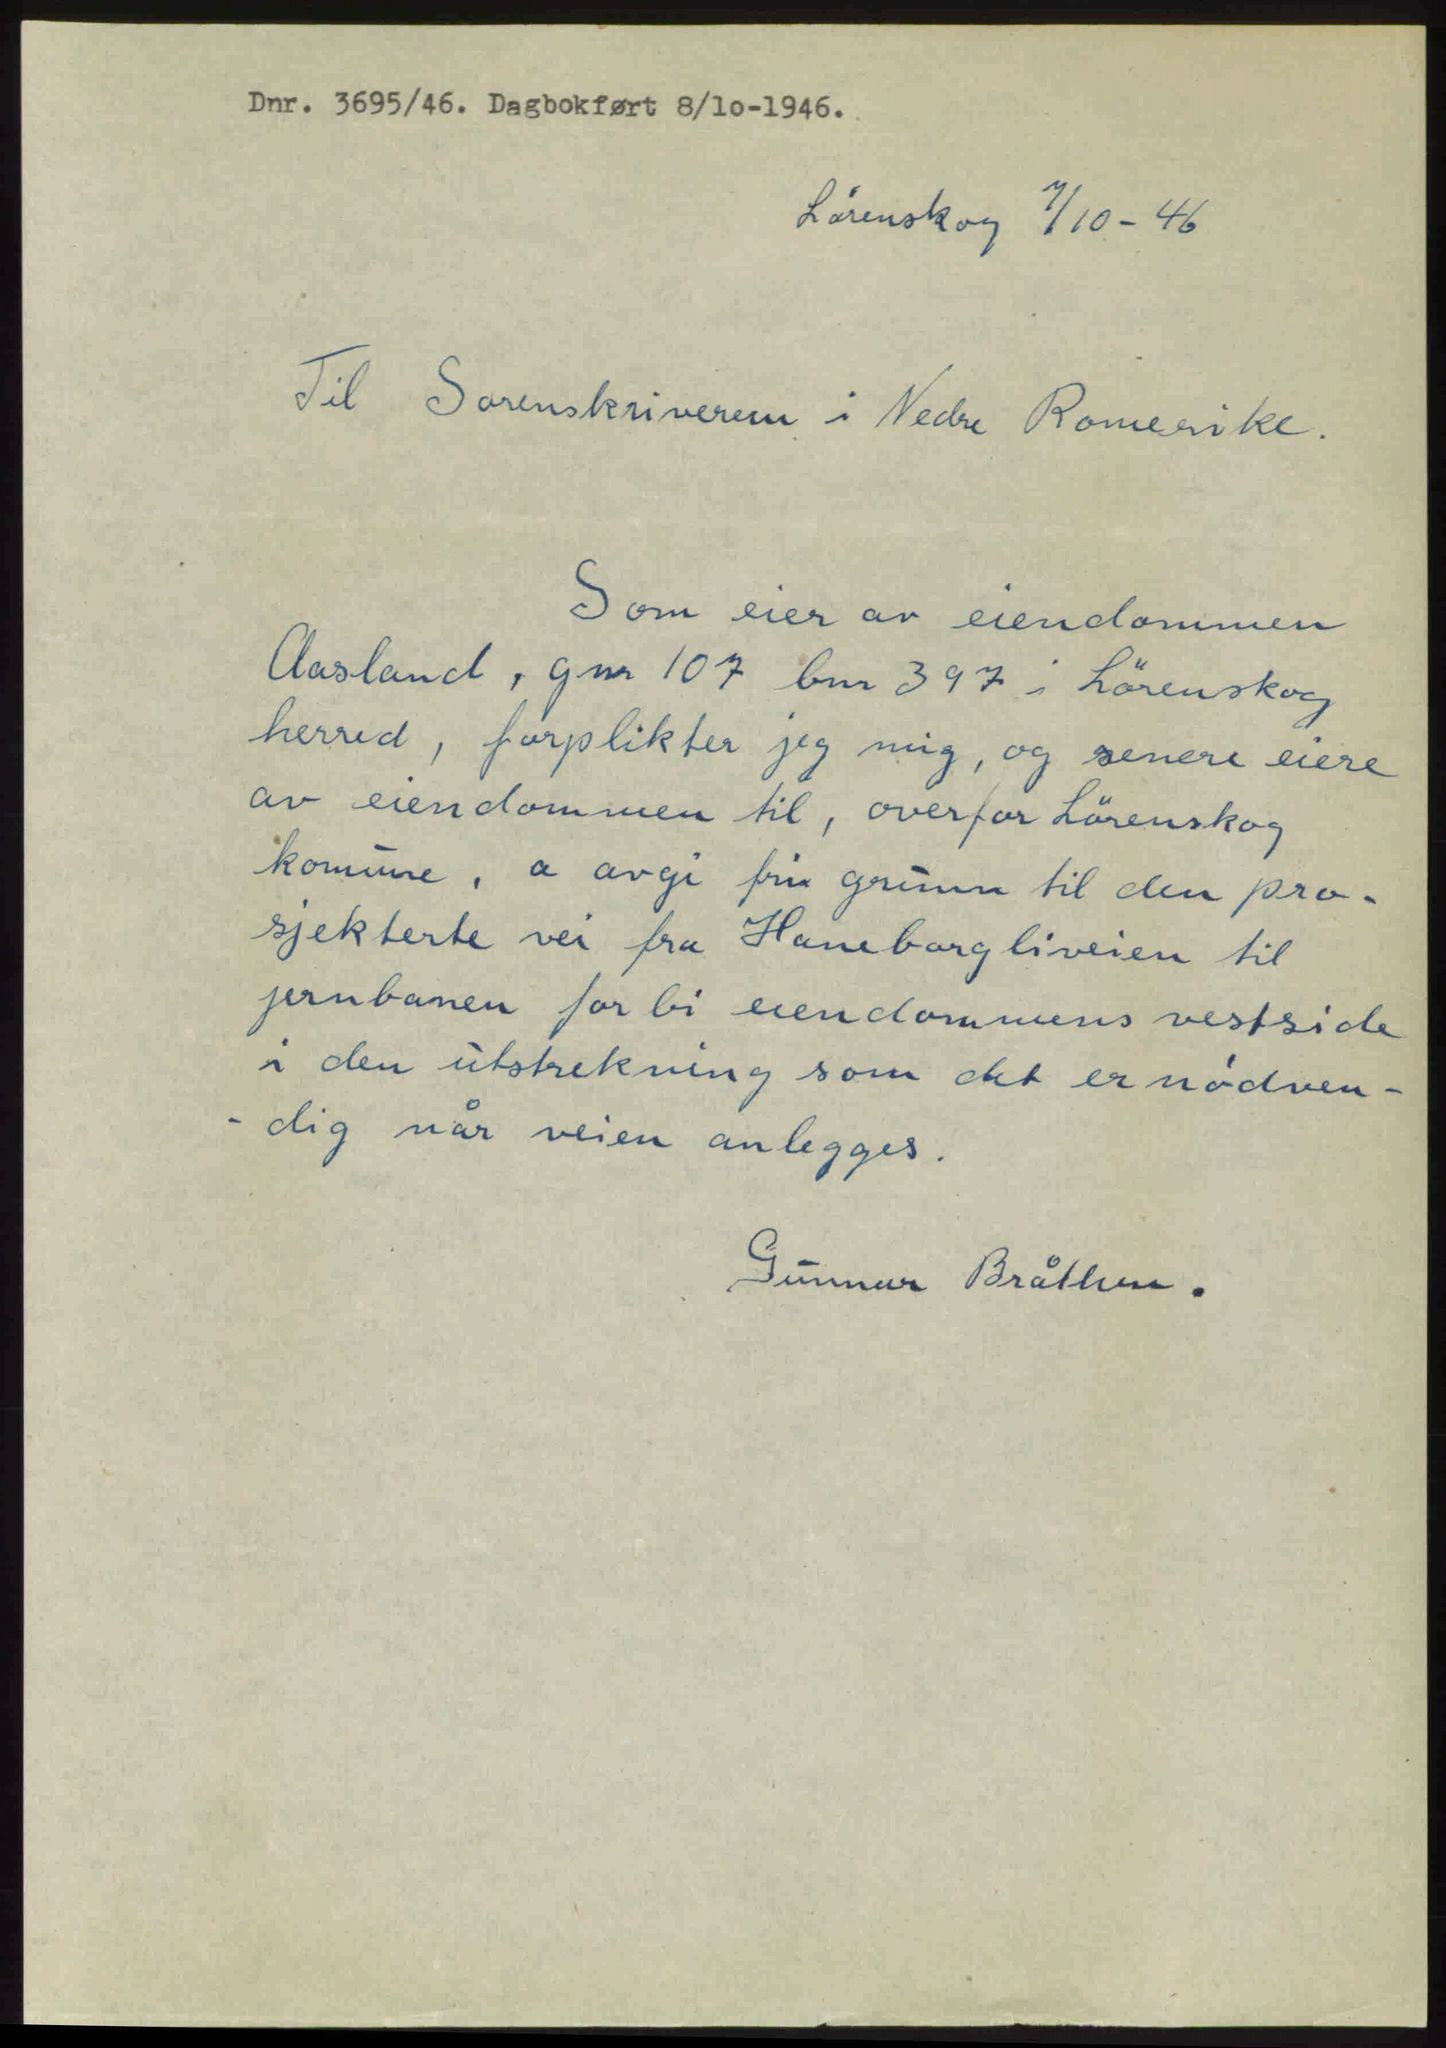 Dnr. 3695/46. Dagbokført 8/1o-1946.
Lörenskog 7/10-46
Til Sorenskriveren i Nedre Romerike.
Som eier av eiendommen
Aasland, gnr 107 bnr 397 i Lörenskog
herred, forplikter jeg mig, og senere eiere
av eiendommen til, overfor Lörenskog
komune, a avgi fri grunn til den pro-
sjekterte vei fra Haneborgliveien til
jernbanen forbi eiendommens vestside
i den utstrekning som det er nödven-
-dig når veien anlegges.
Gunnar Bråthen.